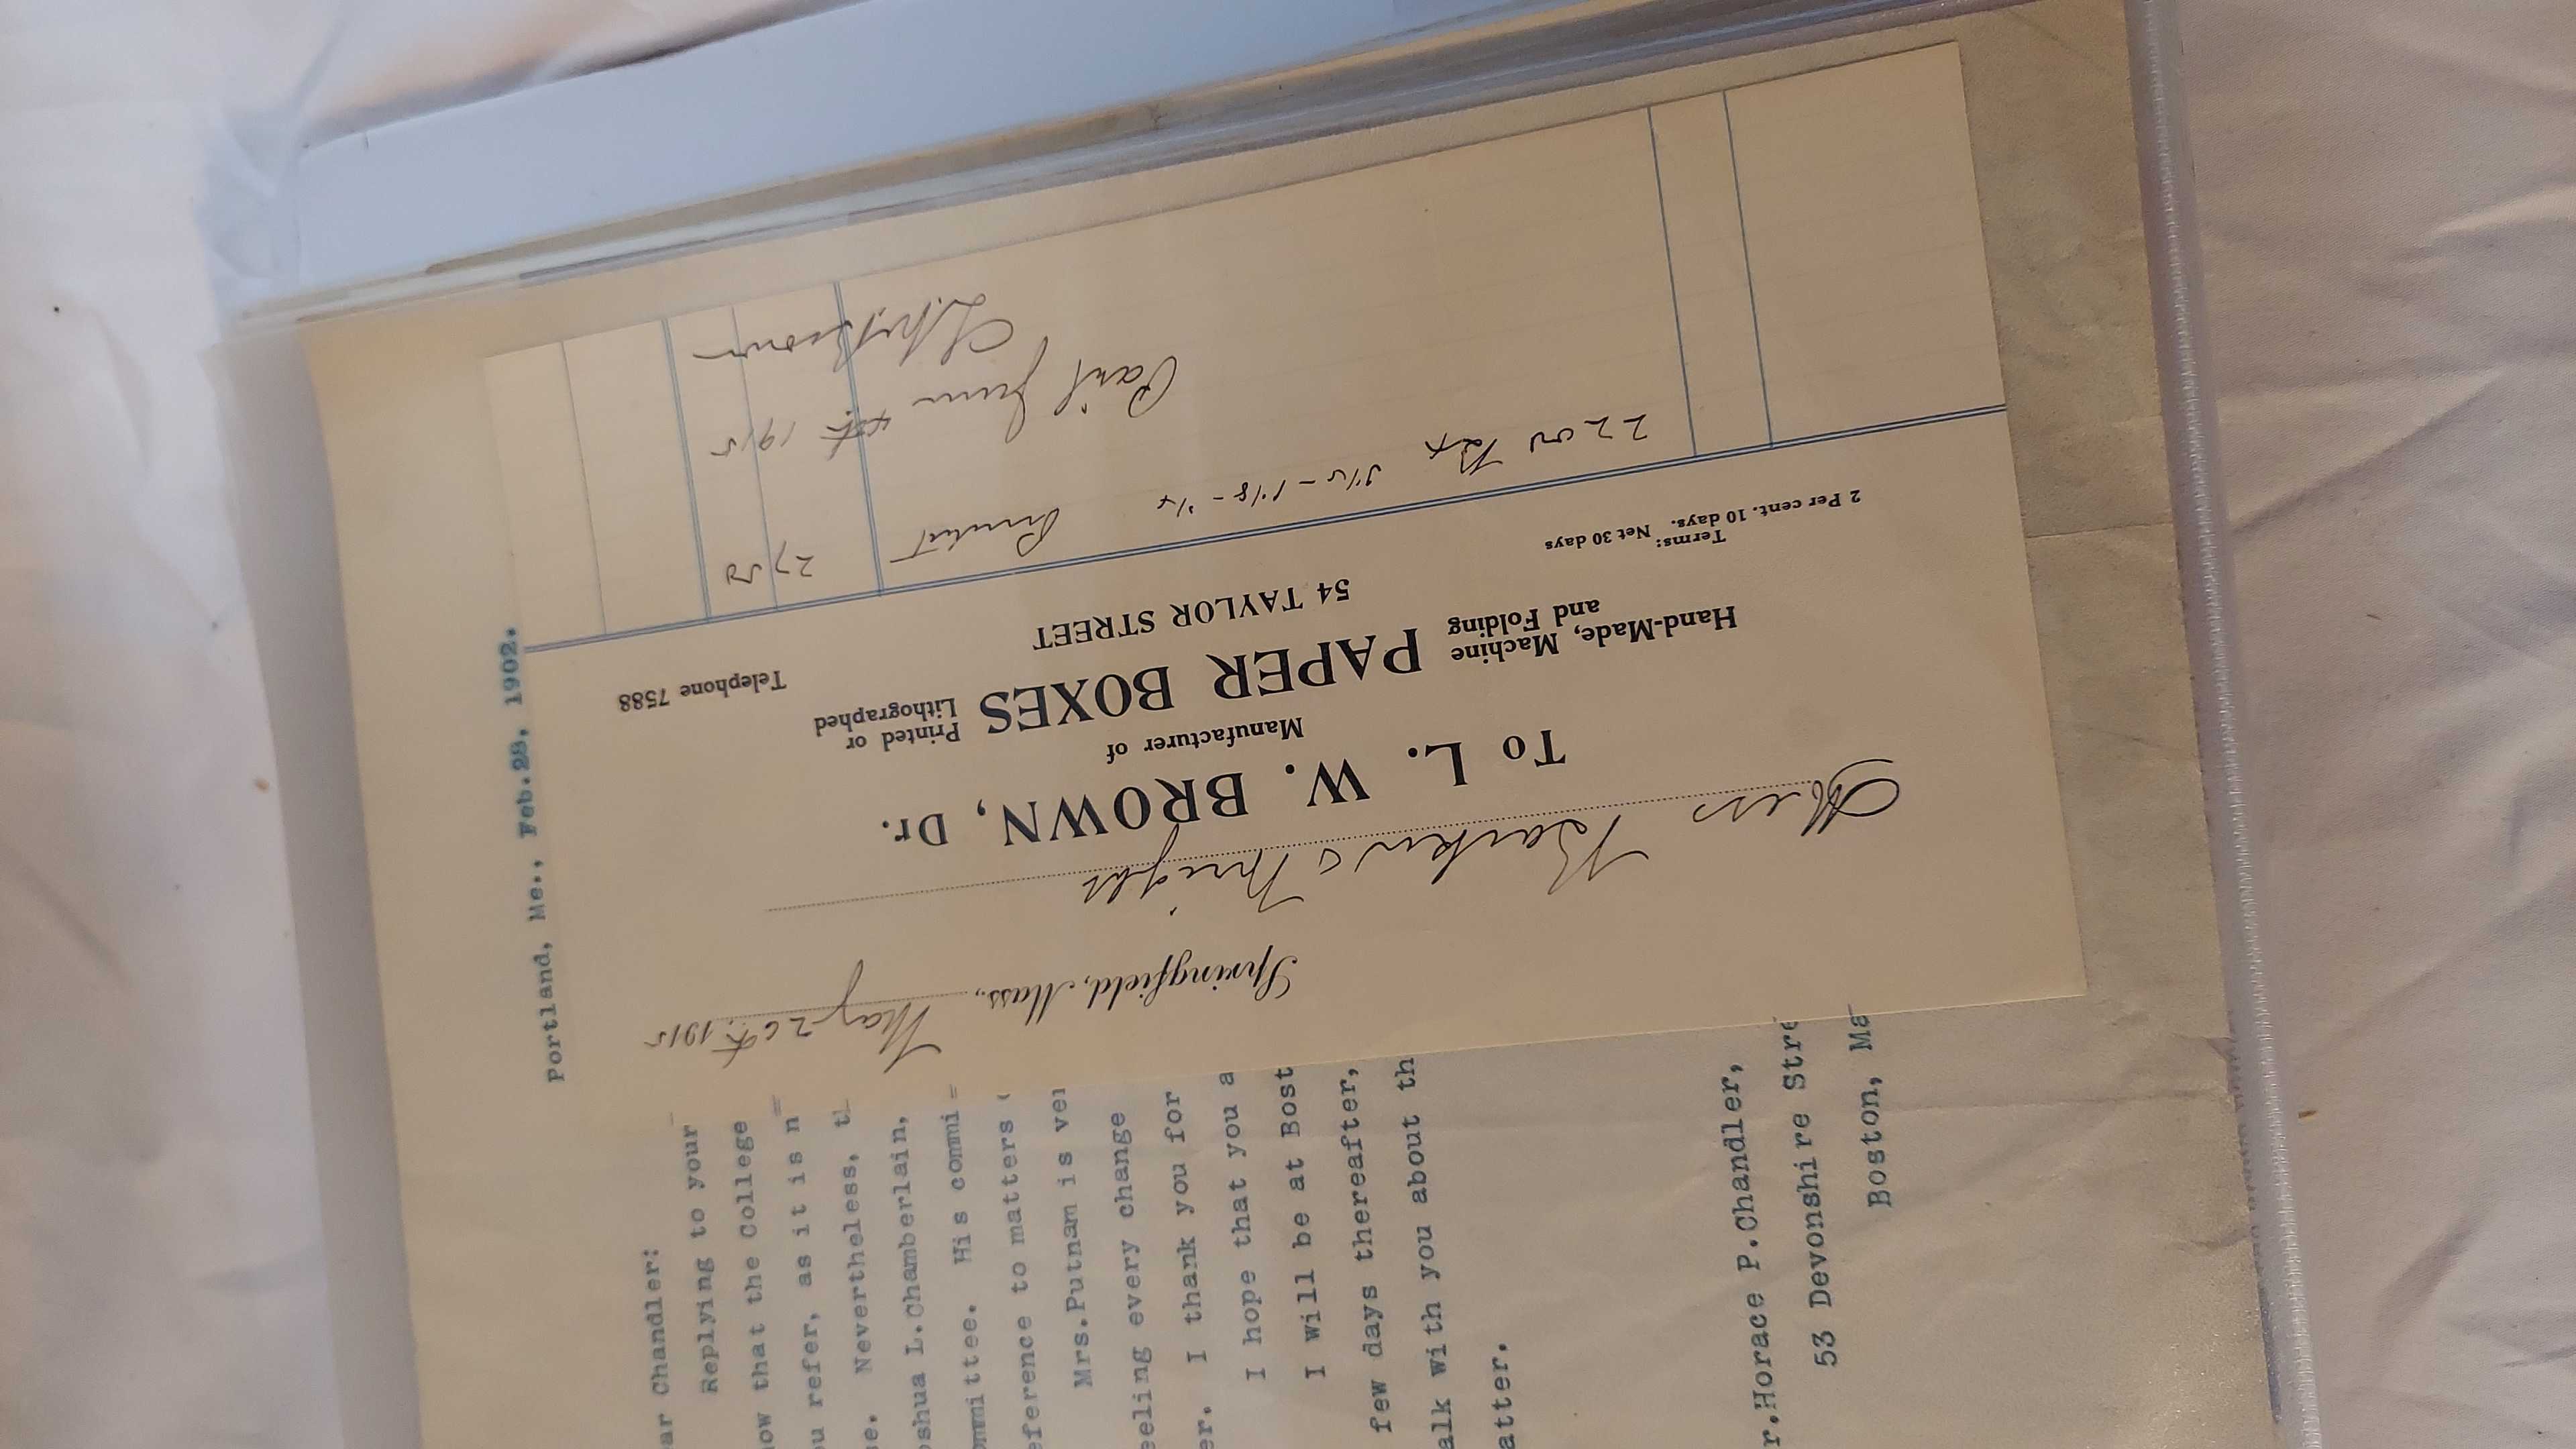 Springfield, Mass., May 26th. 1915
Mess Barkus & Wright
To L. W. BROWN, Dr.
Manufacturer of
Hand-Made, Machine and Folding PAPER BOXES Printed or Lithographed
Telephone 7588
54 TAYLOR STREET
Terms: Net 30 days
2 Per cent. 10 days.
2200 Bx Printed 27 50
Paid June 1915
L. W. Brown
Portland, Me., Feb.28, 1902.
ar Chandler:
Replying to your
ow that the College
u refer, as it is n
e. Nevertheless, t
oshua L.Chamberlain,
ommittee. His commi=
eference to matters
Mrs.Putnam is ver
eeling every change
er. I thank you for
I hope that you a
I will be at Bost
few days thereafter,
alk with you about th
atter.
r.Horace P.Chandler,
53 Devonshire Stre
Boston, Ma